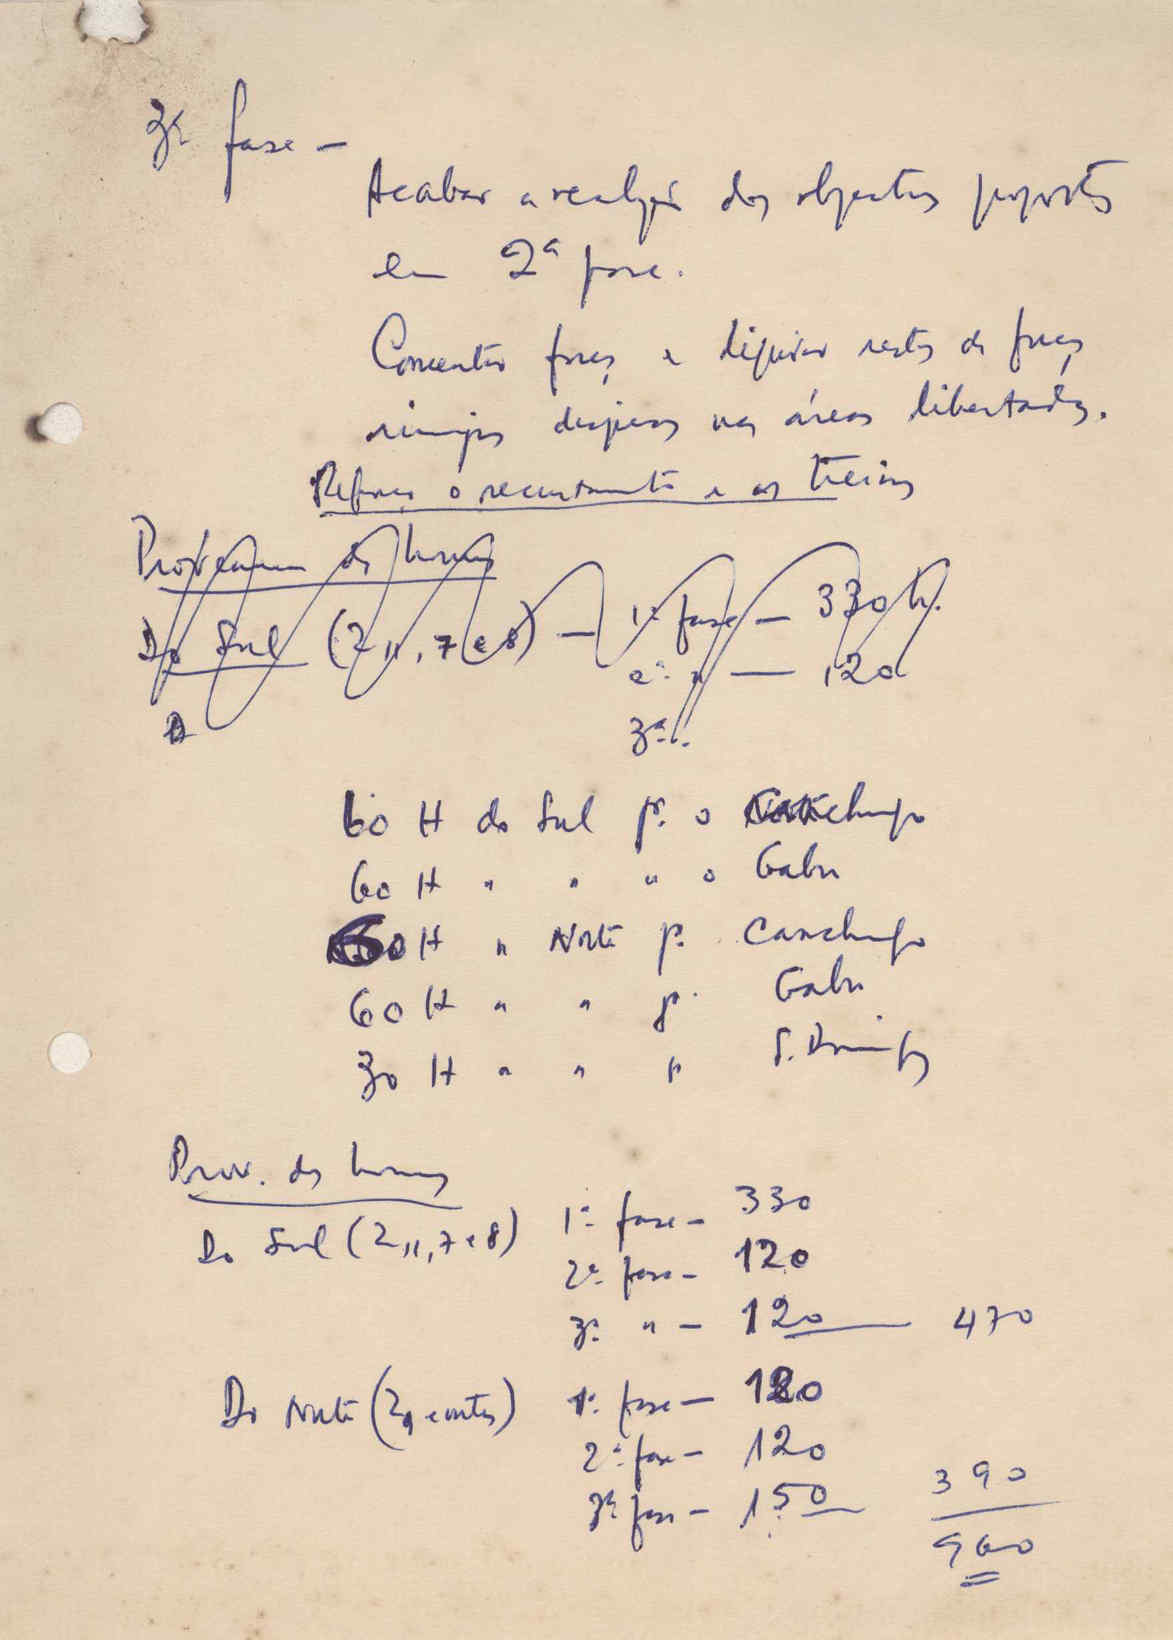 3ª fase —
Acabar a realização dos objectivos propostos
em 2ª fase.
Concentrar forças e liquidar restos de forças
inimigas dispersas nas áreas libertadas.
Reforçar o recrutamento e os treinos
Proveniência dos homens
Do Sul (Z 11, 7 e 8) — 1ª fase — 330 h.
2ª " — 120
3ª
60 H do Sul p. o Canchungo
60 H " " " o Gabu
60 H " Norte p. Canchungo
60 H " " p. Gabu
30 H " " p S. Domingos
Prov. dos homens
Do Sul (Z 11, 7 e 8) 1ª fase — 330
2ª fase — 120
3ª " — 120 — 470
Do Norte (Z e outras) 1ª fase — 120
2ª fase — 120
3ª fase — 150 390
960